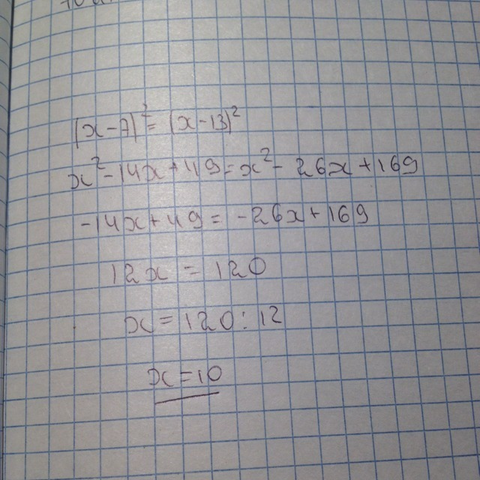 (x-7)²=(x-13)²
x²-14x+49=x²-26x+169
-14x+49=-26x+169
12x=120
x=120:12
x=10